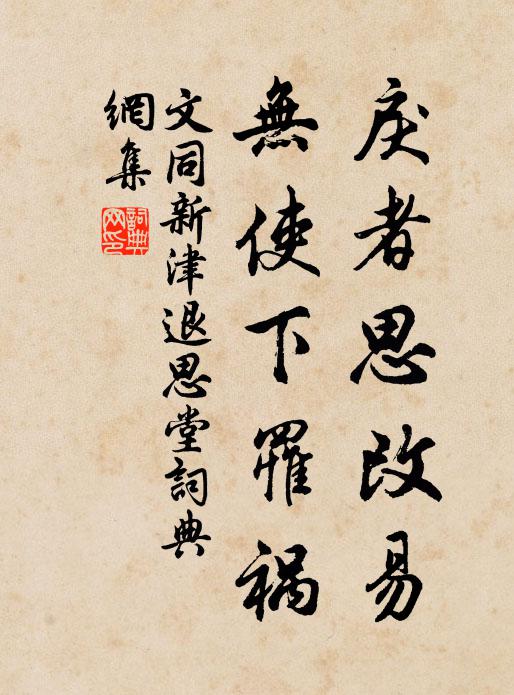 戾者思改易
無使下罹禍
文同新津退思堂詞典
網集
詞典網印